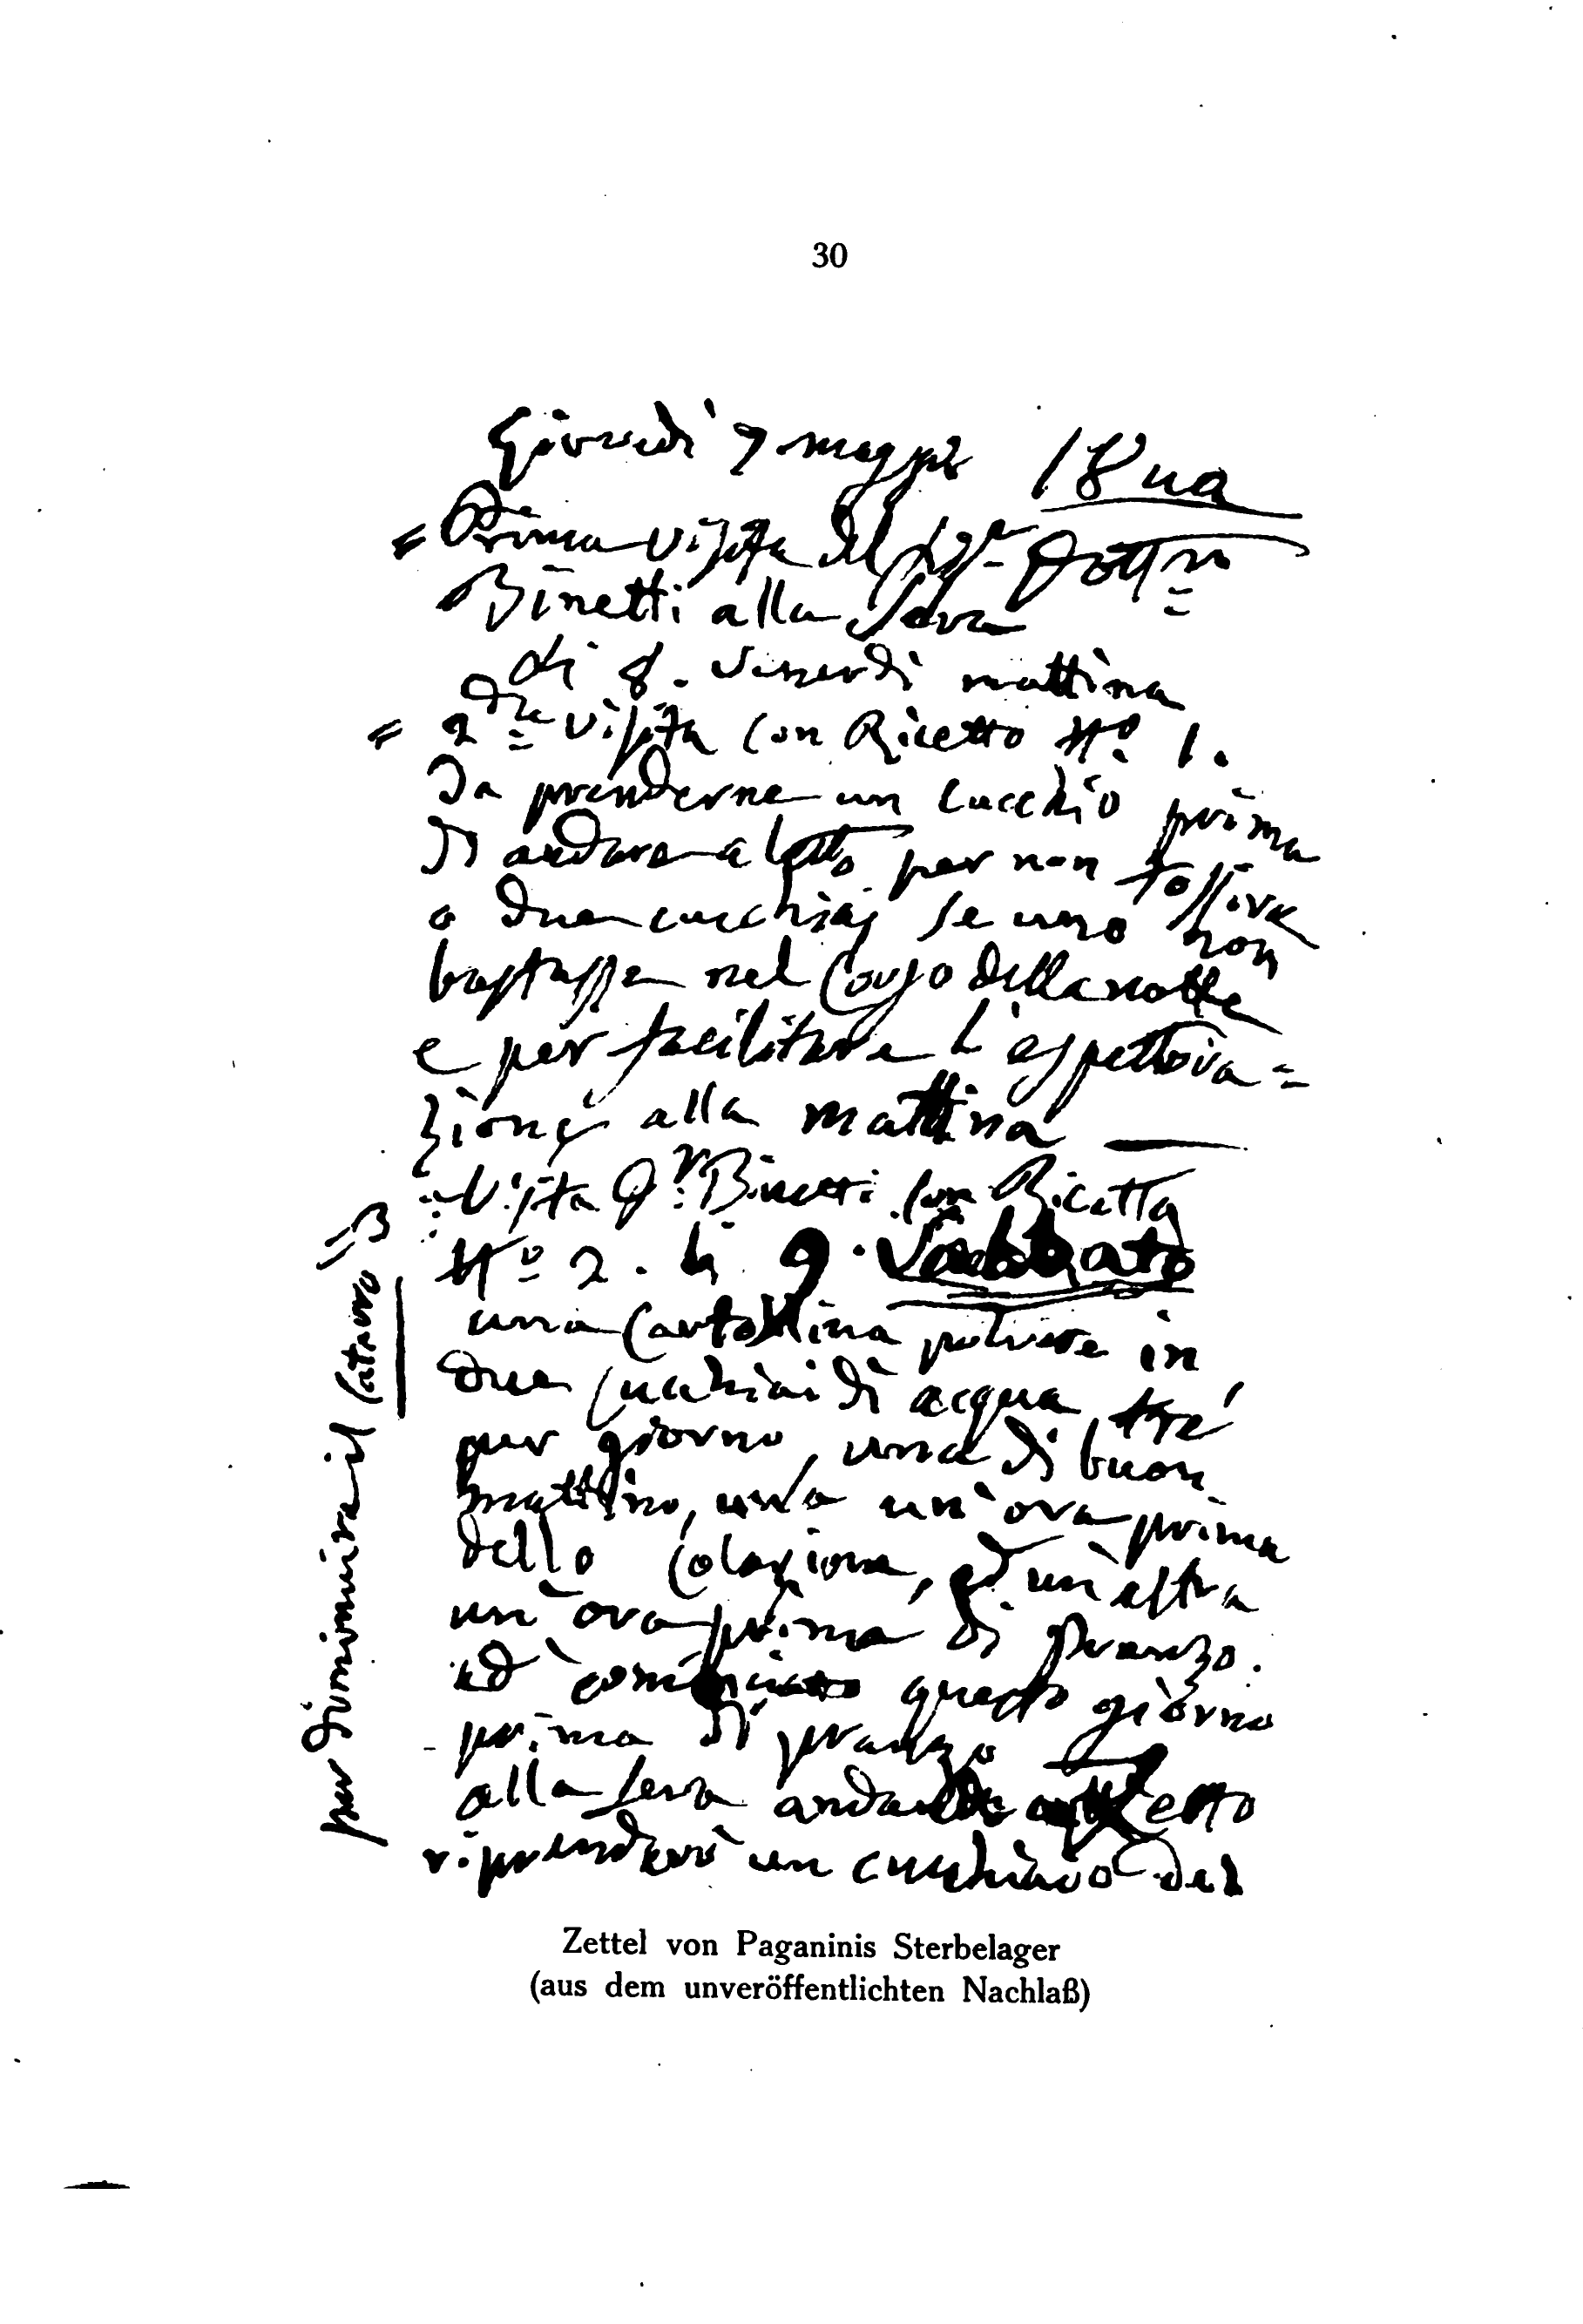 30
Giovedì 7 maggio 18
= Prima visita del Sigr Dottr
Binetti alla Sera
li 8. Venerdì mattina
= 2da visita con Ricetto No 1.
Da prenderne un cucchio prima
di andare a letto per non tossire
o due cucchiaj se uno non
bastasse nel Corso della notte
e per facilitare l'espettora=
zione alla mattina —
Visita Dr Binetti con Ricetta
No 2. li 9. Sabbato
una Cartollina polvere in
due Cucchiai di acqua tre
per giorno, una di buon
mattino, una un'ora prima
della Colazione, ed un'altra
un'ora prima di pranzo.
ed cominciato questo giorno
prima di pranzo
alla sera andando a letto
riprenderò un cucchiaio del
per diminuire il Catarro =
Zettel von Paganinis Sterbelager
(aus dem unveröffentlichten Nachlaß)